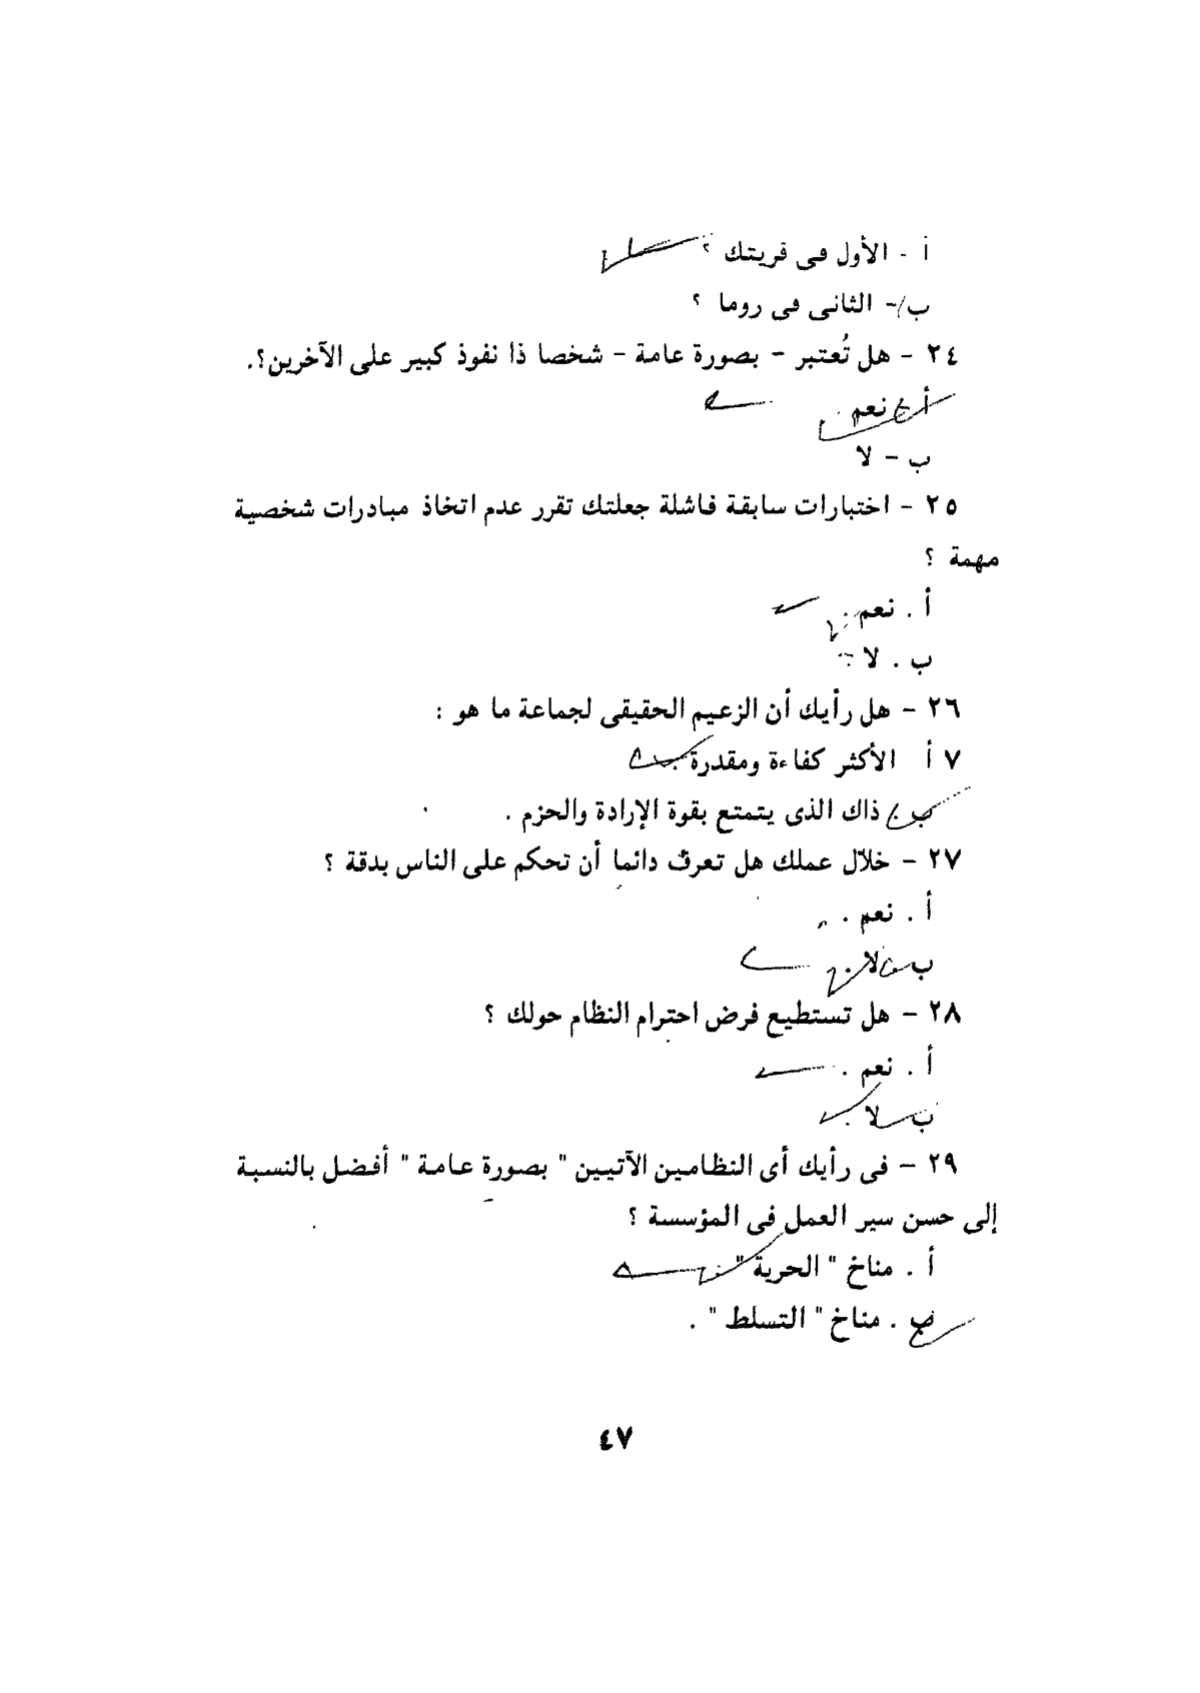 أ - الأول فى قريتك ؟
ب - الثانى فى روما ؟
٢٤ - هل تُعتبر - بصورة عامة - شخصا ذا نفوذ كبير على الآخرين؟.
أ - نعم .
ب - لا
٢٥ - اختبارات سابقة فاشلة جعلتك تقرر عدم اتخاذ مبادرات شخصية
مهمة ؟
أ . نعم .
ب . لا .
٢٦ - هل رأيك أن الزعيم الحقيقى لجماعة ما هو :
٧ أ الأكثر كفاءة ومقدرة .
ب . ذاك الذى يتمتع بقوة الإرادة والحزم .
٢٧ - خلال عملك هل تعرف دائما أن تحكم على الناس بدقة ؟
أ . نعم .
ب . لا .
٢٨ - هل تستطيع فرض احترام النظام حولك ؟
أ . نعم .
ب . لا .
٢٩ - فى رأيك أى النظامين الآتيين " بصورة عامة " أفضل بالنسبة
إلى حسن سير العمل فى المؤسسة ؟
أ . مناخ " الحرية " .
ب . مناخ " التسلط " .
٤٧